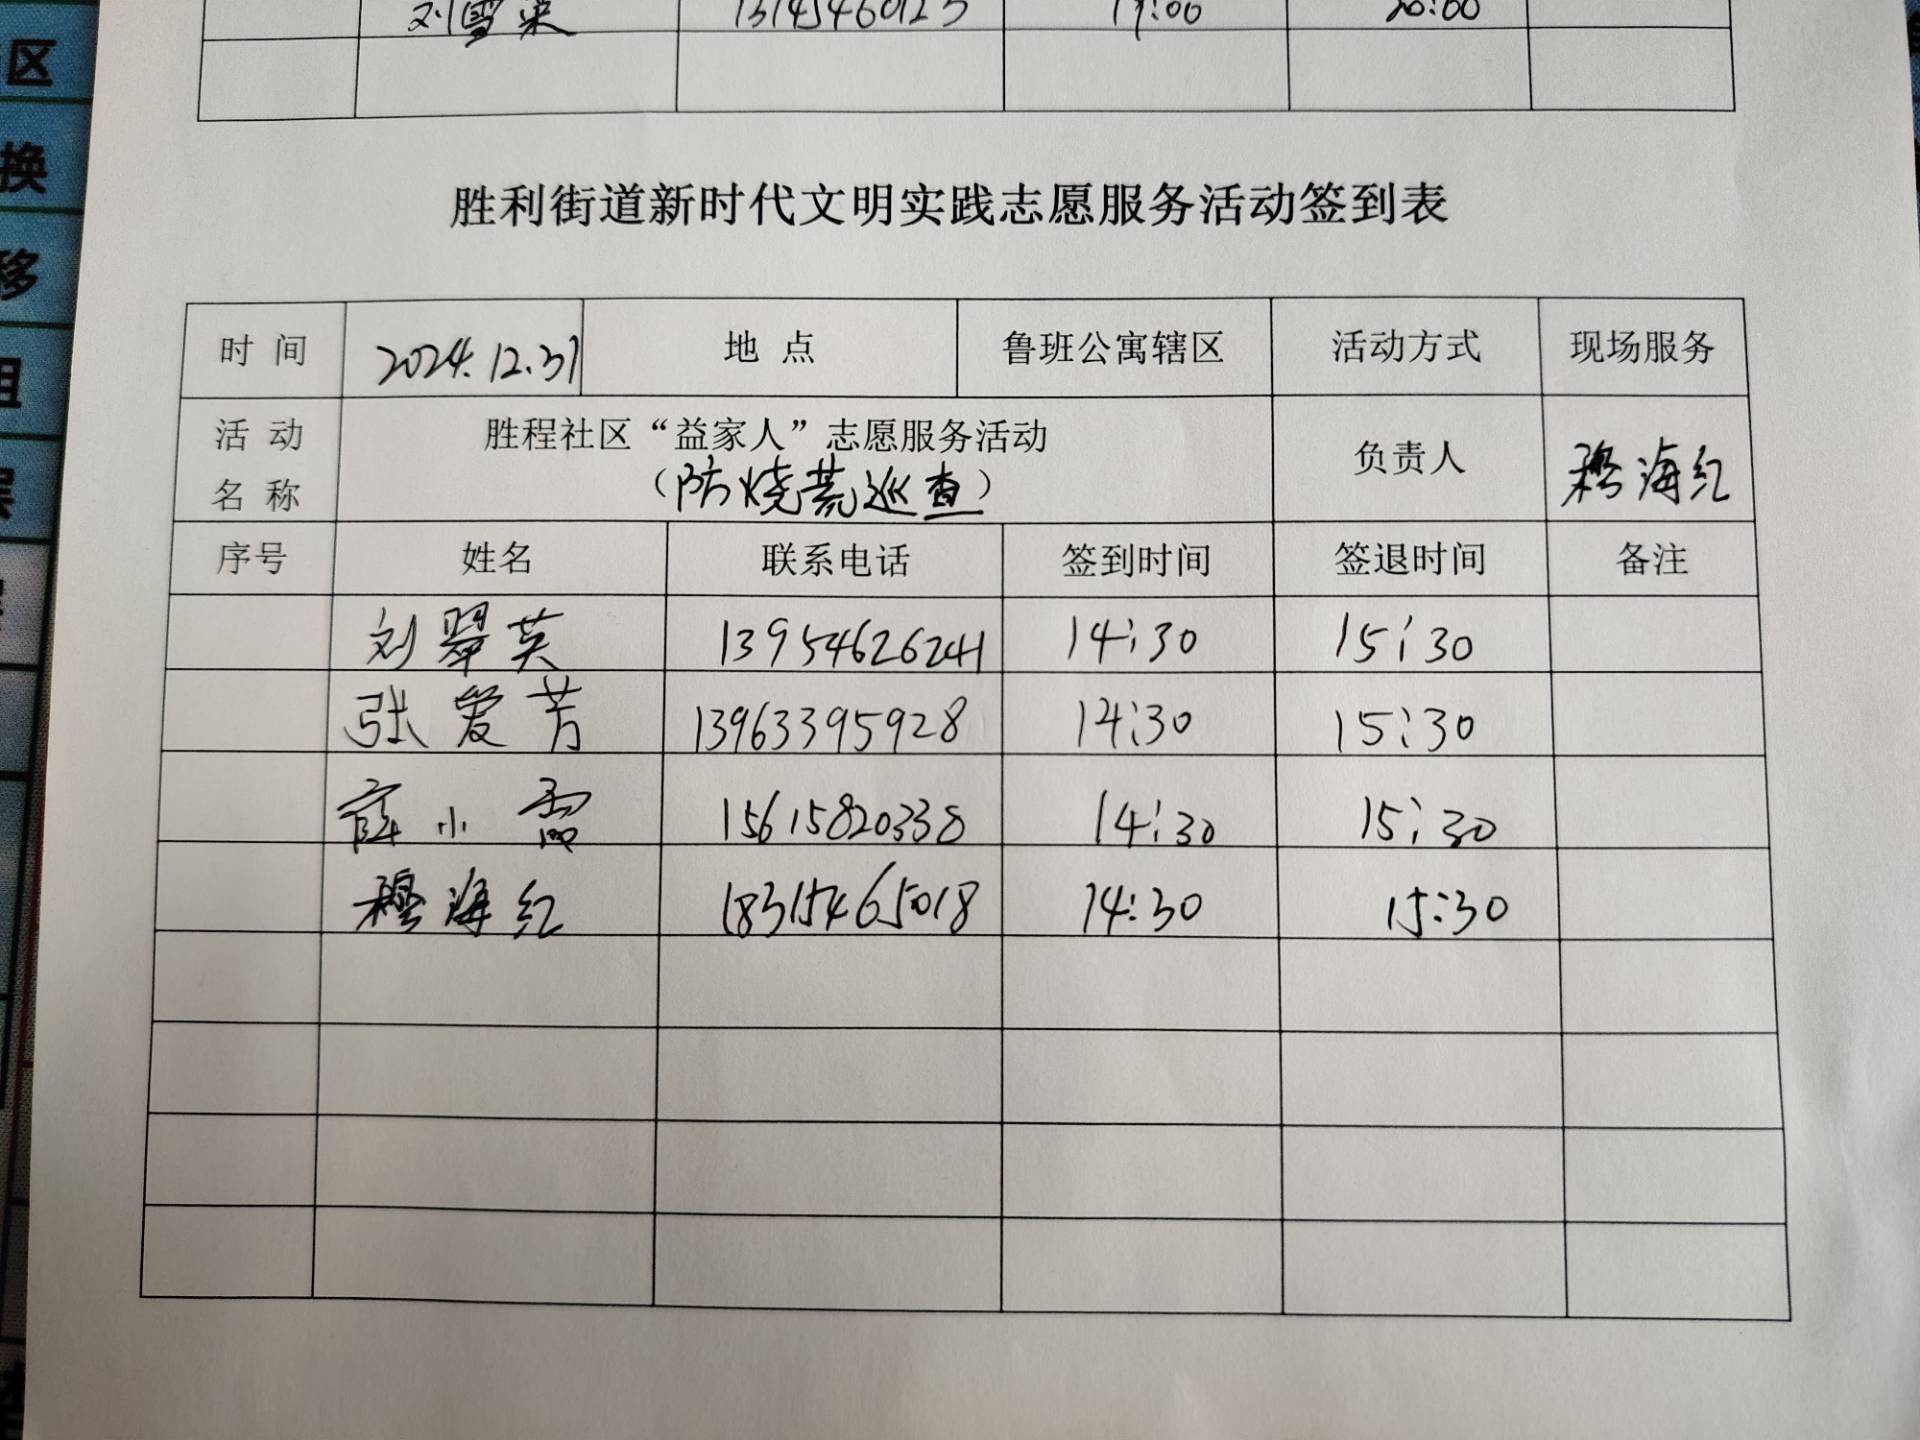 刘雪
19:00
20:00
胜利街道新时代文明实践志愿服务活动签到表
时 间 2024.12.31 地 点 鲁班公寓辖区 活动方式 现场服务
活 动
名 称
胜程社区“益家人”志愿服务活动
（防烧荒巡查）
负责人 穆海红
序号 姓名 联系电话 签到时间 签退时间 备注
刘翠英 13954626241 14:30 15:30
张爱芳 13963395928 14:30 15:30
薛小霞 15615820338 14:30 15:30
穆海红 18315465018 14:30 15:30
区
换
移
组